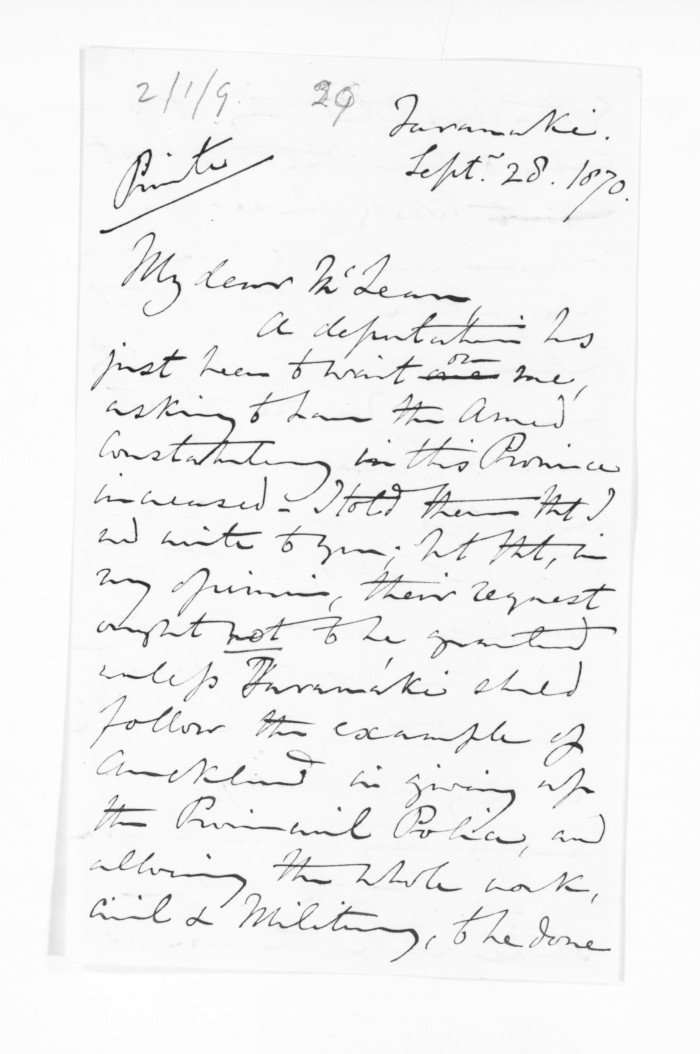 2/1/9. 29
Taranaki.
Septr. 28. 1870.
Private
My dear McLean,
A deputation has
just been to wait on me,
asking to have the Armed
Constabulary in this Province
increased - I told them tht I
wd write to you; but tht, in
my opinion, their request
ought not to be granted
unless Taranaki should
follow the example of
Auckland in giving up
the Provincial Police, and
allowing the whole work,
civil & Military, to be done